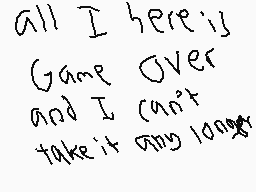 all I here is
Game over
and I can't
take it any longer